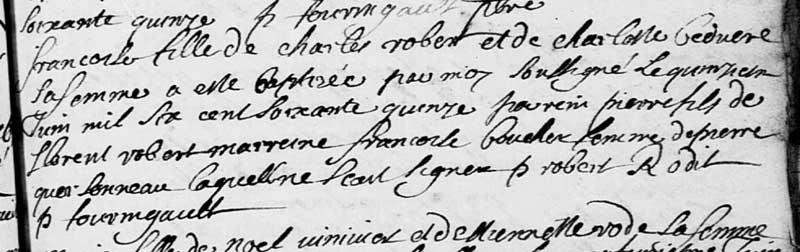 soixante quinze p fourmgault pbre
francoise fille de charles robert et de charlotte beduere
sa femme a este baptizée par moy soussigné le quinziem
Juin mil six cent soixante quinze parein pierre fils de
florent robert marreine francoise boucher femme de pierre
quersonneau laquelle ne scait signer p robert R odit
p fourmgault
fille de noel vinivier et de sa femme